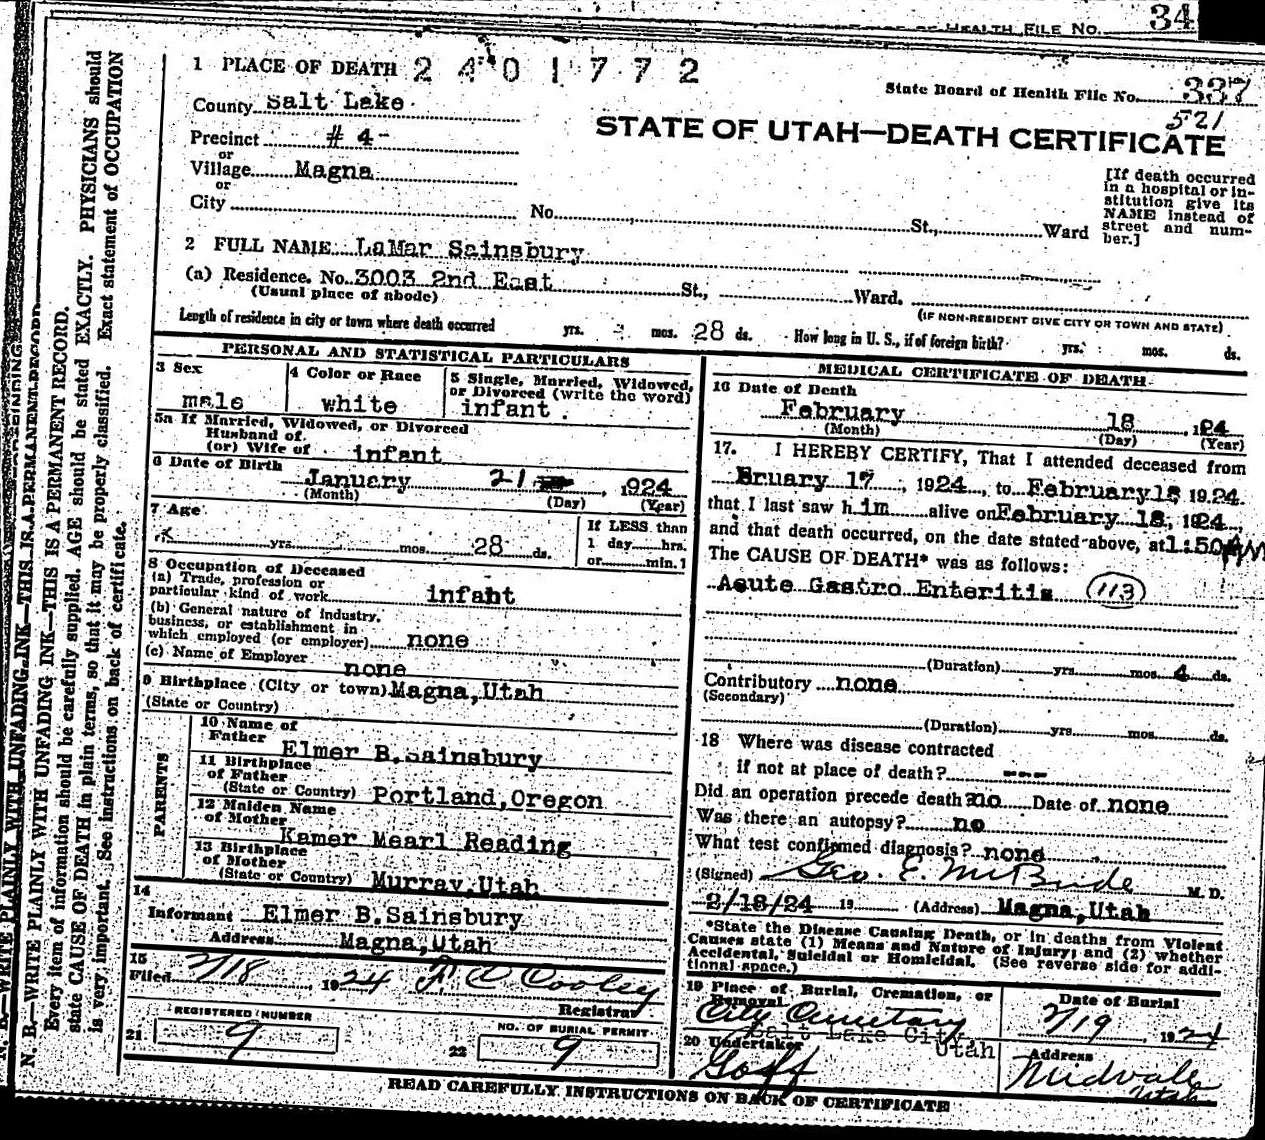 HEALTH FILE No. 34
1 PLACE OF DEATH 2 4 0 1 7 7 2
State Board of Health File No. 337
521
County Salt Lake
STATE OF UTAH—DEATH CERTIFICATE
Precinct # 4-
or
Village Magna
or
City No. St., Ward
[If death occurred
in a hospital or in-
stitution give its
NAME instead of
street and num-
ber.]
2 FULL NAME LaMar Sainsbury
(a) Residence. No. 3003 2nd East St., Ward.
(Usual place of abode)
(IF NON-RESIDENT GIVE CITY OR TOWN AND STATE)
Length of residence in city or town where death occurred yrs. - mos. 28 ds. How long in U. S., if of foreign birth? yrs. mos. ds.
PERSONAL AND STATISTICAL PARTICULARS
3 Sex
male
4 Color or Race
white
5 Single, Married, Widowed,
or Divorced (write the word)
infant
5a If Married, Widowed, or Divorced
Husband of
(or) Wife of infant
6 Date of Birth
January 21, 1924
(Month) (Day) (Year)
7 Age
yrs. mos. 28 ds.
If LESS than
1 day hrs.
or min.?
8 Occupation of Deceased
(a) Trade, profession or
particular kind of work infant
(b) General nature of industry,
business, or establishment in
which employed (or employer) none
(c) Name of Employer
none
9 Birthplace (City or town) Magna, Utah
(State or Country)
PARENTS
10 Name of
Father
Elmer B. Sainsbury
11 Birthplace
of Father
(State or Country) Portland, Oregon
12 Maiden Name
of Mother
Kamer Mearl Reading
13 Birthplace
of Mother
(State or Country) Murray, Utah
14
Informant Elmer B. Sainsbury
Address Magna, Utah
15
Filed 2/18 1924 Cooley
Registrar
REGISTERED NUMBER
21. 9
NO. OF BURIAL PERMIT
22 9
MEDICAL CERTIFICATE OF DEATH
16 Date of Death
February 18, 1924
(Month) (Day) (Year)
17. I HEREBY CERTIFY, That I attended deceased from
Bruary 17, 1924, to February 18 1924.
that I last saw him alive on February 18, 1924,
and that death occurred, on the date stated above, at 1:50
The CAUSE OF DEATH* was as follows:
Acute Gastro Enteritis (113)
(Duration) yrs. mos. 4 ds.
Contributory none
(Secondary)
(Duration) yrs. mos. ds.
18 Where was disease contracted
if not at place of death? ---
Did an operation precede death? no Date of none
Was there an autopsy? no
What test confirmed diagnosis? none
(Signed) Geo. E. McBride M. D.
2/18/24 19 (Address) Magna, Utah
*State the Disease Causing Death, or in deaths from Violent
Causes state (1) Means and Nature of Injury; and (2) whether
Accidental, Suicidal or Homicidal. (See reverse side for addi-
tional space.)
19 Place of Burial, Cremation, or
Removal
City Cemetary
Salt Lake City,
Utah
Date of Burial
2/19, 1924
20 Undertaker
Goff
Address
Midvale
Utah
READ CAREFULLY INSTRUCTIONS ON BACK OF CERTIFICATE
N. B.—WRITE PLAINLY WITH UNFADING INK—THIS IS A PERMANENT RECORD
N. B.—WRITE PLAINLY WITH UNFADING INK—THIS IS A PERMANENT RECORD.
Every item of information should be carefully supplied. AGE should be stated EXACTLY. PHYSICIANS should
state CAUSE OF DEATH in plain terms, so that it may be properly classified. Exact statement of OCCUPATION
is very important. See instructions on back of certificate.